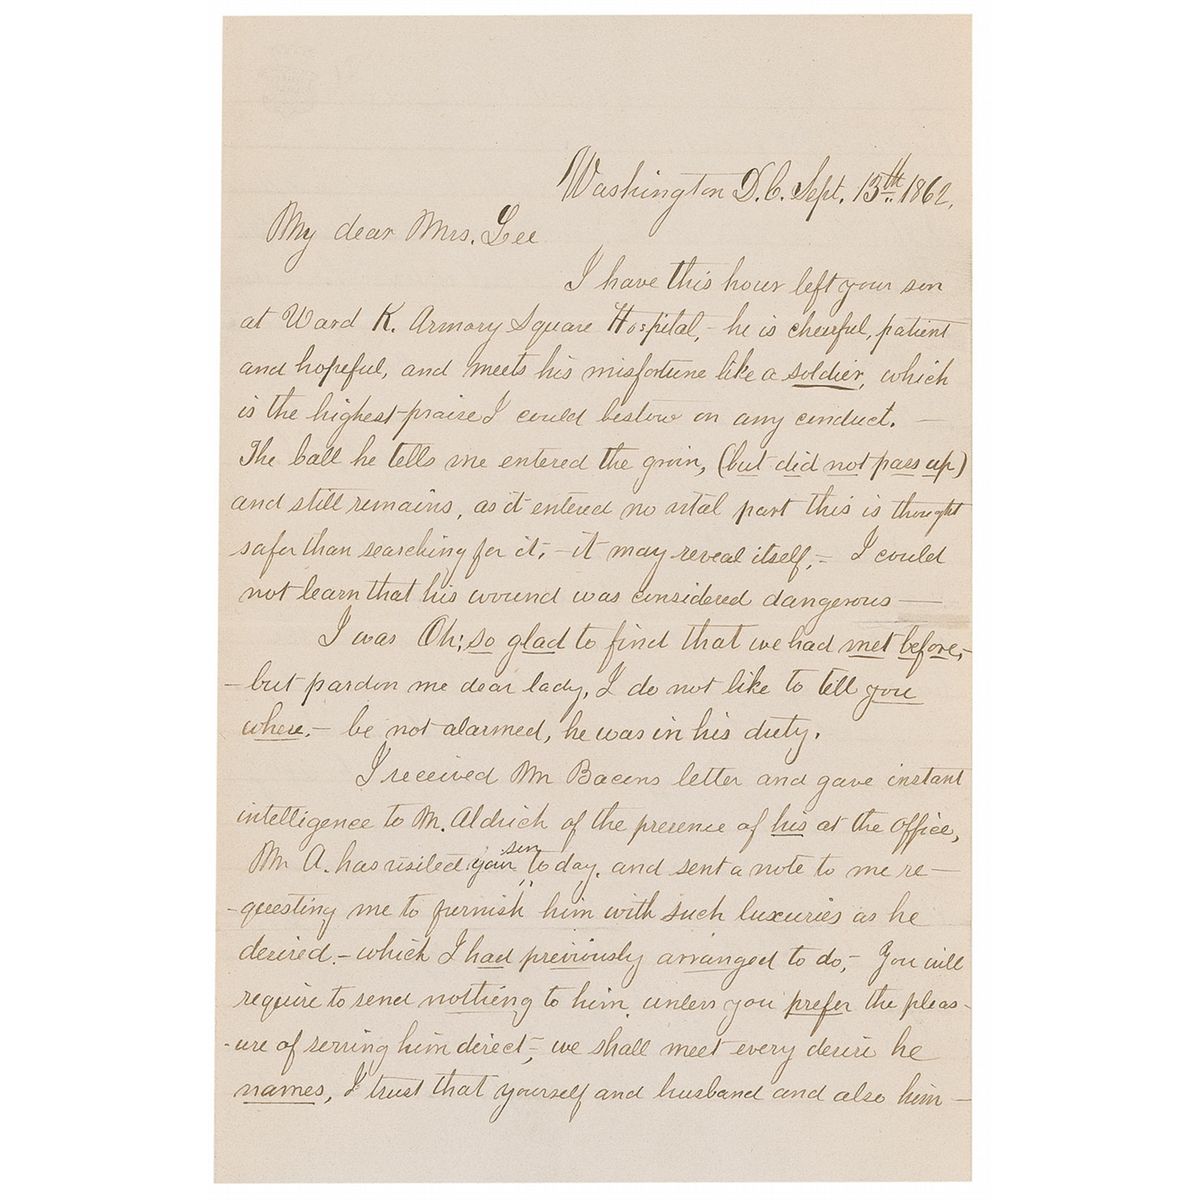 Washington D.C. Sept. 13th. 1862,
My dear Mrs. Lee
I have this hour left your son
at Ward K. Armory Square Hospital, - he is cheerful, patient
and hopeful, and meets his misfortune like a soldier, which
is the highest praise I could bestow on any conduct. —
The ball he tells me entered the groin, (but did not pass up)
and still remains, as it entered no vital part this is thought
safer than searching for it, - it may reveal itself, - I could
not learn that his wound was considered dangerous —
I was Oh; so glad to find that we had met before, -
- but pardon me dear lady, I do not like to tell you
where, - be not alarmed, he was in his duty.
I received Mr Bacons letter and gave instant
intelligence to Mr. Aldrich of the presence of his at the office,
Mr A. has visited your son today, and sent a note to me re -
- questing me to furnish him with such luxuries as he
desired - which I had previously arranged to do, - You will
require to send nothing to him, unless you prefer the pleas -
- ure of serving him direct, - we shall meet every desire he
names, I trust that yourself and husband and also him -